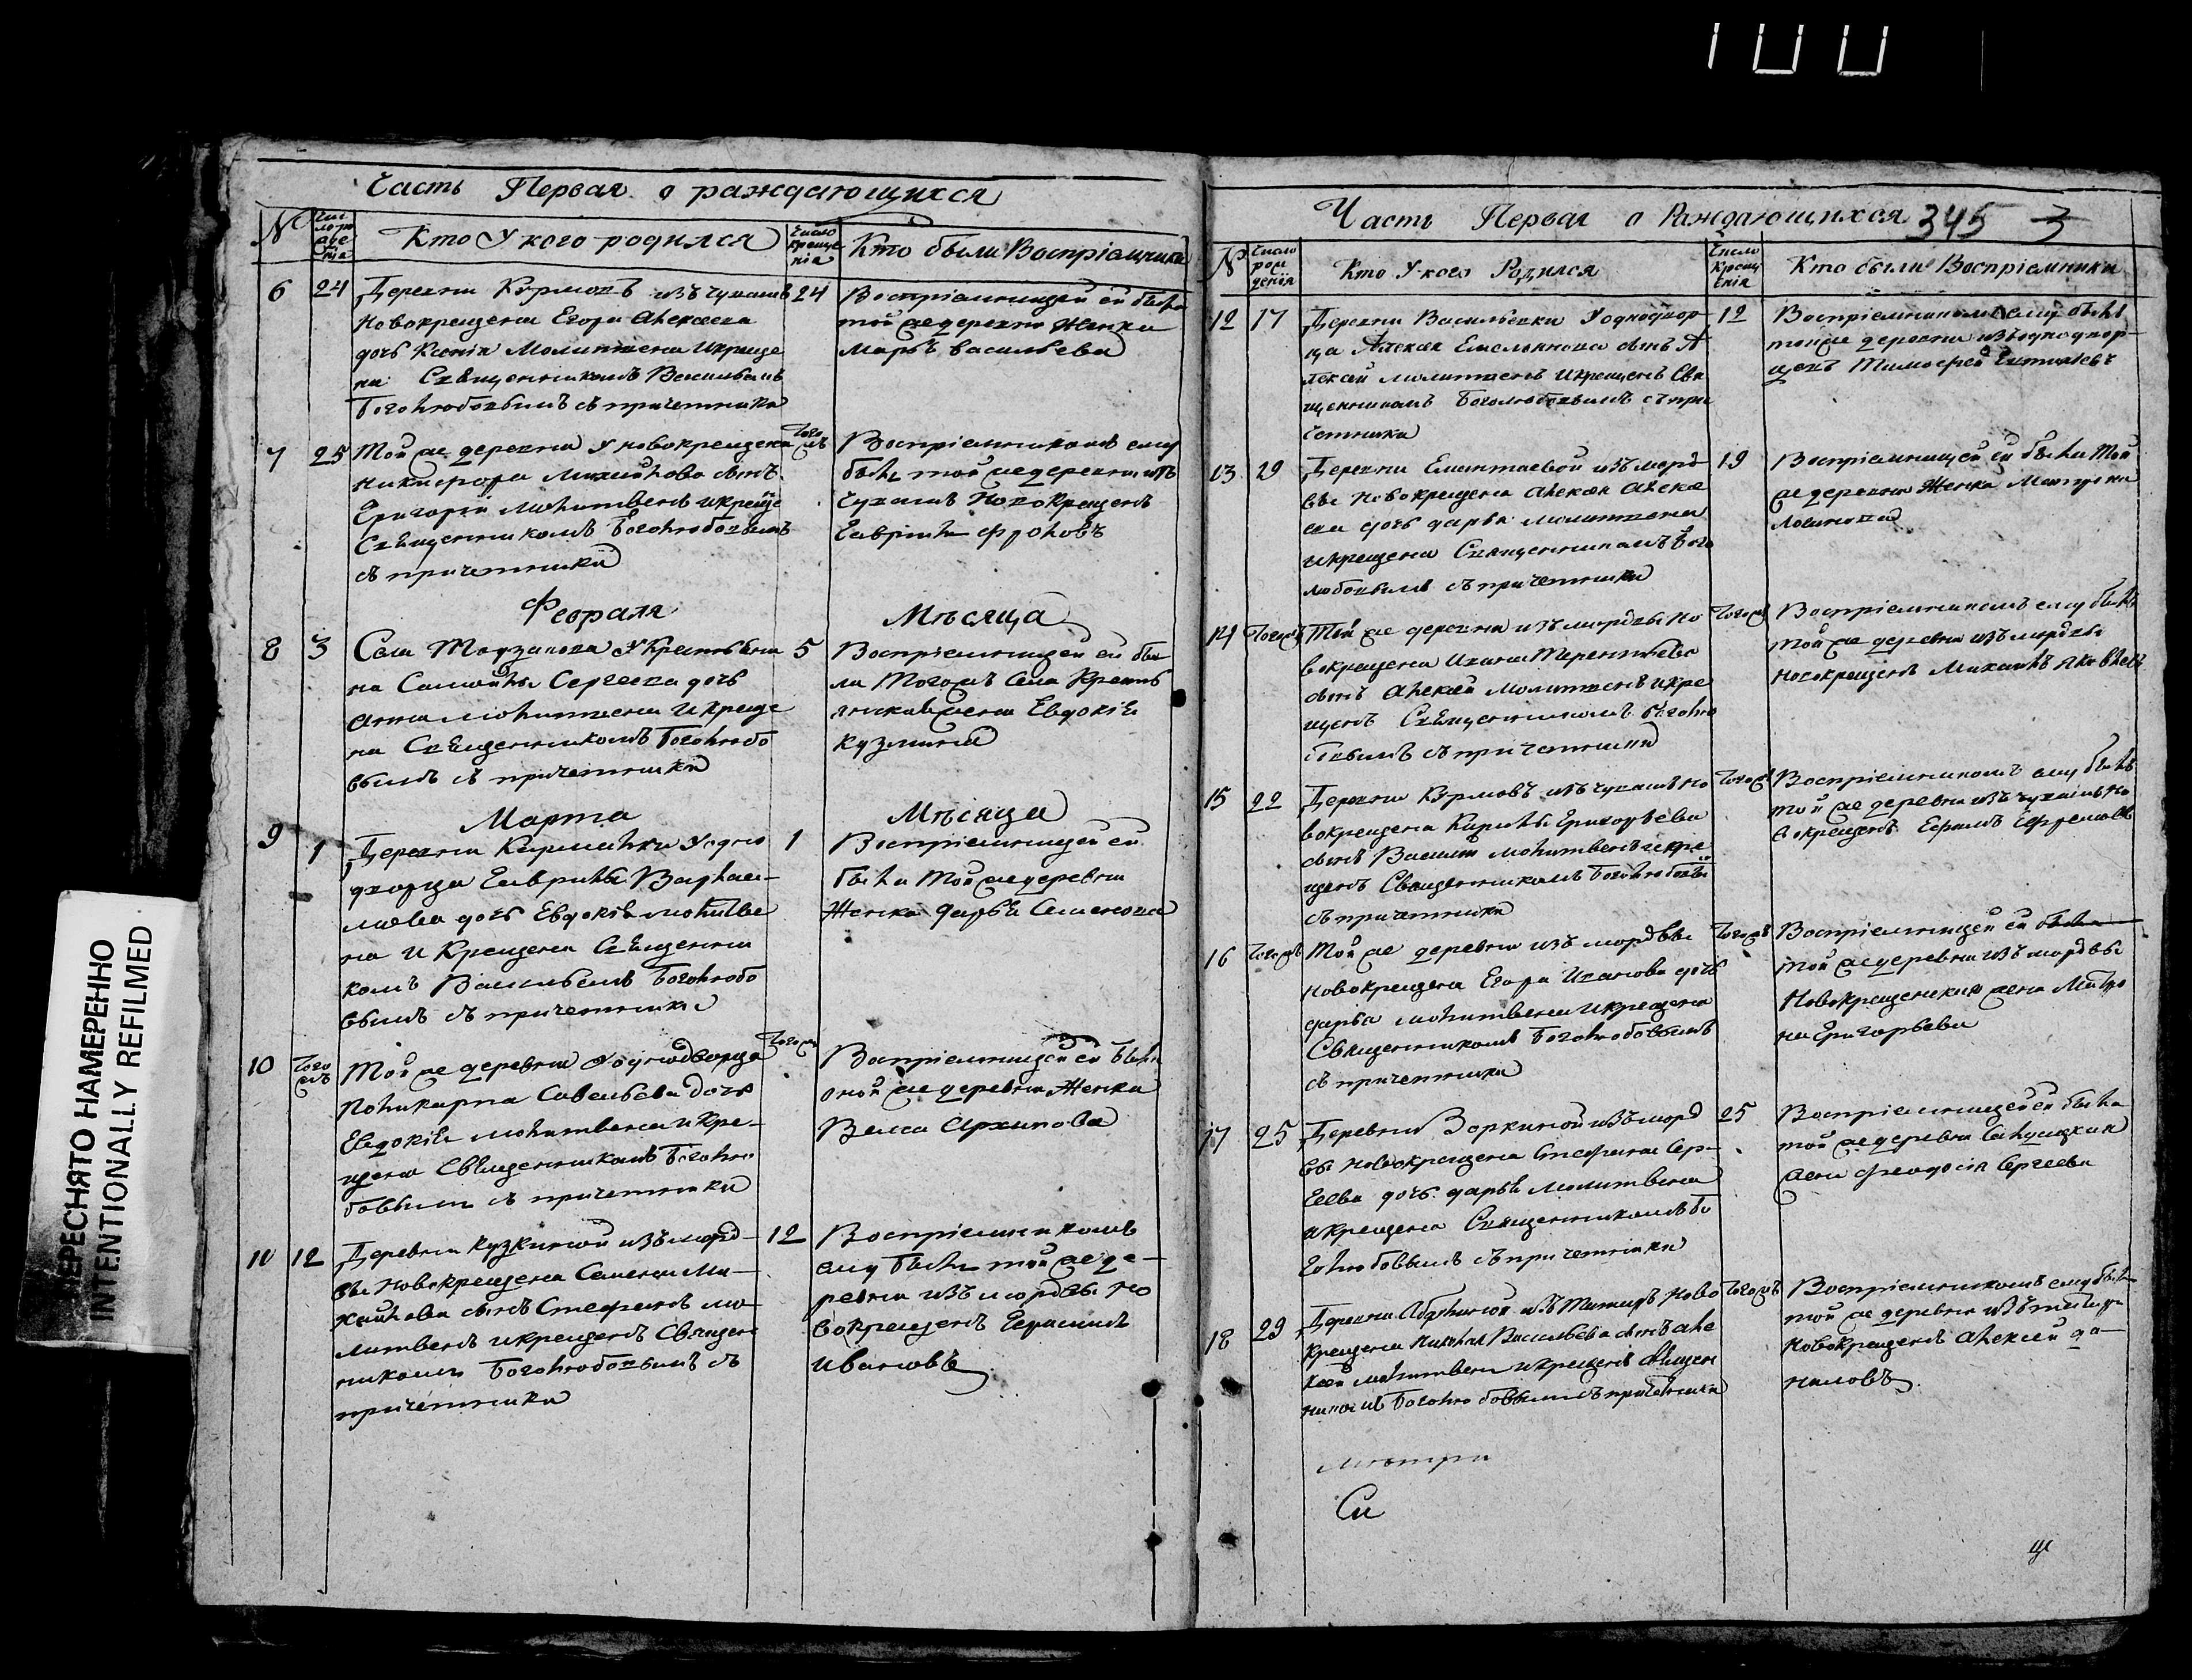 100
ПЕРЕСНЯТО НАМЕРЕННО
INTENTIONALLY REFILMED
Часть Первая о раждающихся
№
Число рождения
Кто У кого родился
Число крещения
Кто были Воспріемники
6 24 Деревни Кармовъ изъ чувашъ 24
новокрещена Егора Алексеева
дочь Ксенія Молитвена и креще
на Священникомъ Васильемъ
Боголюбовымъ съ причетники
Воспріемницей ей была
той же деревни Женка
Марья Васильева
7 25 Той же деревни у новокрещена того жъ
Никифора Михайлова сынъ
Григорій молитвенъ и креще
Священникомъ Боголюбовымъ
съ причетники
Воспріемникомъ ему
былъ той же деревни изъ
Чувашъ Новокрещенъ
Гаврила Фроловъ
Февраля Мѣсяца
8 3 Села У Крестьяни 5
на Самойлы Сергеева дочь
Анна молитвена И креще
на Священникомъ Боголюбо
вымъ съ причетники
Воспріемницей ей бы
ла Тогожъ Села Кресть
янская жена Евдокія
Кузмина
Марта Мѣсяца
9 1 Деревни Кармалки У одно 1
дворца Гаврилы Варфало
меева дочь Евдокія молитве
на И Крещена Священни
комъ Васильемъ Боголюбо
вымъ съ причетники
Воспріемницей ей
была Той же деревни
Женка Дарья Семенова
10 Того жъ Той же деревни У однодворца Того жъ
Поликарпа Савельева дочь
Евдокія молитвена и кре-
щена Священникомъ Боголю
бовымъ съ причетники
Воспріемницей ей была
оной же деревни Женка
Васса Архипова
10 12 Деревни Кузкиной изъ морд- 12
вы новокрещена Семена Ми-
хайлова сынъ Стефанъ мо
литвенъ и крещенъ Священ
никомъ Боголюбовымъ съ
причетники
Воспріемникомъ
ему былъ той же де-
ревни изъ мордвы но
вокрещенъ Герасимъ
Ивановъ
Часть Первая о Раждающихся 345 3
№
Число рожденія
Кто У кого Родился
Число Крещенія
Кто были Воспріемники
12 17 Деревни Васильевки У однодвор- 12
ца Алексея Емельянова сынъ А
лексей молитвенъ и крещенъ Свя
щенникомъ Боголюбовымъ съ при
четники
Воспріемникомъ ему былъ
той же деревни изъ однодвор-
цевъ Тимофей
13 19 Деревни Емантаевой изъ морд- 19
вы Новокрещена Алексея Алексе
ева дочь Дарья молитвена
и крещена Священникомъ Бого
любовымъ съ причетники
Воспріемницей ей была Той
же деревни Женка Матрона
Логинова
14 Тогожъ Той же деревни изъ мордвы но Тогожъ
вокрещена Ивана Терентьева
сынъ Алексей Молитвенъ и кре
щенъ Священникомъ Боголю
бовымъ съ причетники
Воспріемникомъ ему былъ
той же деревни изъ мордвы
новокрещенъ Михаилъ Яковлевъ
15 22 Деревни Кармовъ изъ чувашъ но Тогожъ
вокрещена Кирилы Григорьева
сынъ Василій молитвенъ и кре
щенъ Священникомъ Боголюбовы
съ причетники
Воспріемникомъ ему былъ
той же деревни изъ чувашъ но
вокрещенъ Ефремовъ
16 Тогожъ Той же деревни изъ мордвы Тогожъ
новокрещена Егора Иванова дочь
Дарья молитвена и крещена
Священникомъ Боголюбовымъ
съ причетники
Воспріемницей ей была
той же деревни изъ мордвы
Новокрещенская жена Матро
на Григорьева
17 25 Деревни Зоркиной изъ морд 25
вы новокрещена Стефана Сер-
геева дочь Дарья молитвена
и крещена Священникомъ Бо
голюбовымъ съ причетники
Воспріемницей ей была
той же деревни
жена Феодосія Сергеева
18 29 Деревни изъ Татаръ Ново Тогожъ
крещена Василева сынъ Але
ксей молитвенъ и крещенъ Священ
никомъ Боголюбовымъ съ причетники
Воспріемникомъ ему былъ
той же деревни изъ татаръ
новокрещенъ Алексей Да-
ниловъ
Си